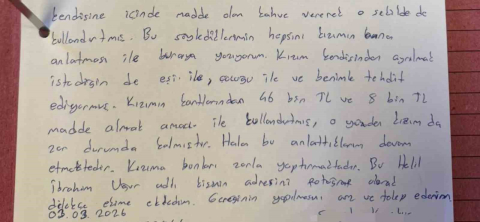 kendisine içinde madde olan kahve vererek o şekilde de
kullandırtmış. Bu söylediklerimin hepsini kızımın bana
anlatması ile buraya yazıyorum. Kızım kendisinden ayrılmak
istediğin de eşi ile, çocuğu ile ve benimle tehdit
ediyormuş. Kızımın kartlarından 46 bin TL ve 8 bin TL
madde almak amacı ile kullandırtmış, o yüzden kızım da
zor durumda kalmıştır. Hala bu anlattıklarım devam
etmektedir. Kızıma bunları zorla yaptırmaktadır. Bu Halil
İbrahim Uğur adlı kişinin adresini olarak
dilekçe ekine ekledim. Gereğinin yapılmasını arz ve talep ederim.
03.03.2026